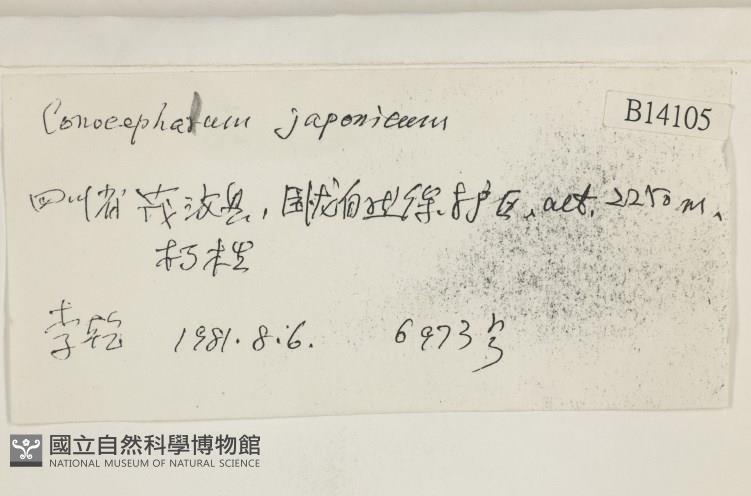 B14105
Conocephalum japonicum
四川省茂汶县,卧龙自然保护区,alt. 2250m,
朽桩
李乾 1981.8.6. 6973号
國立自然科學博物館
NATIONAL MUSEUM OF NATURAL SCIENCE